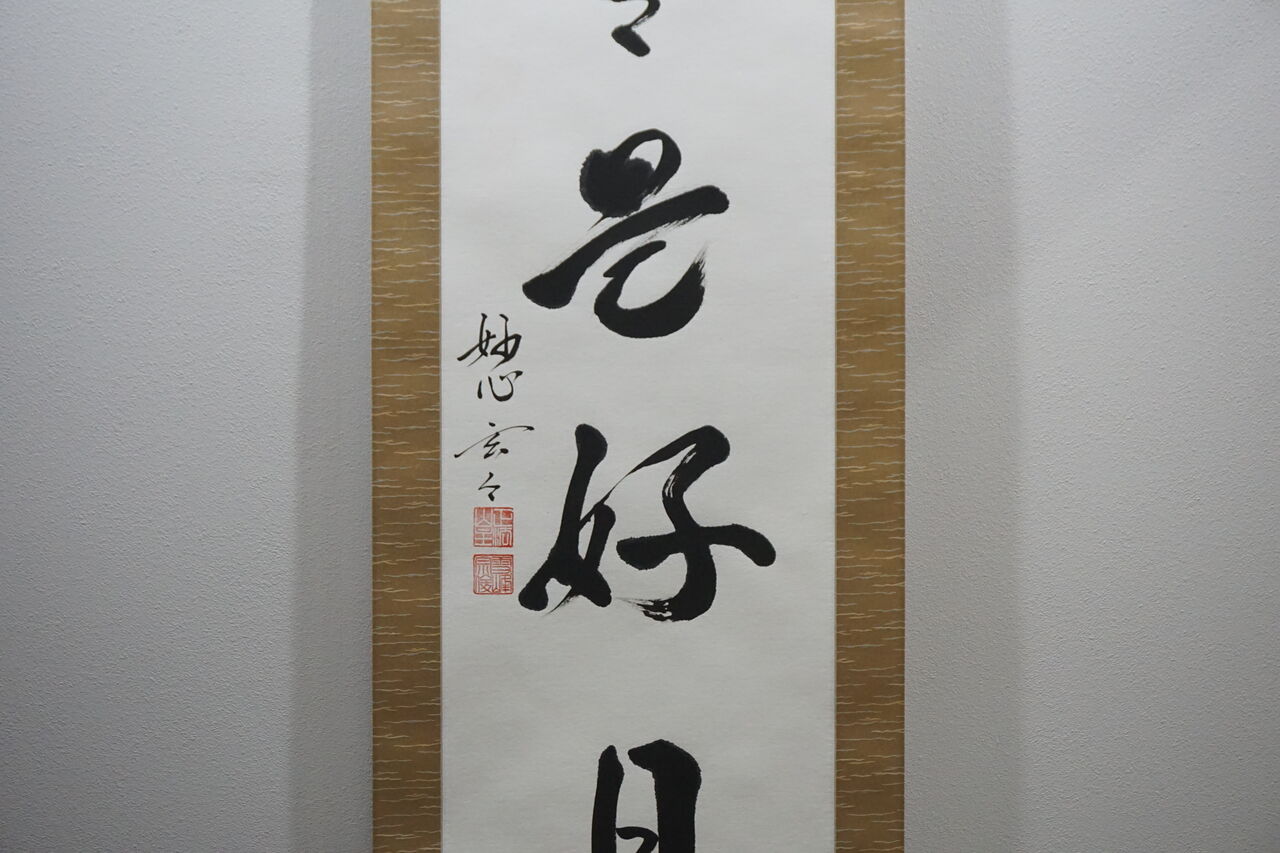 々是好日
妙心玄々